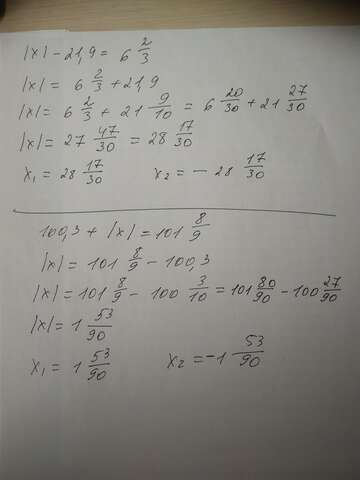 |x| - 21,9 = 6 2/3
|x| = 6 2/3 + 21,9
|x| = 6 2/3 + 21 9/10 = 6 20/30 + 21 27/30
|x| = 27 47/30 = 28 17/30
x₁ = 28 17/30 x₂ = - 28 17/30
100,3 + |x| = 101 8/9
|x| = 101 8/9 - 100,3
|x| = 101 8/9 - 100 3/10 = 101 80/90 - 100 27/90
|x| = 1 53/90
x₁ = 1 53/90 x₂ = -1 53/90